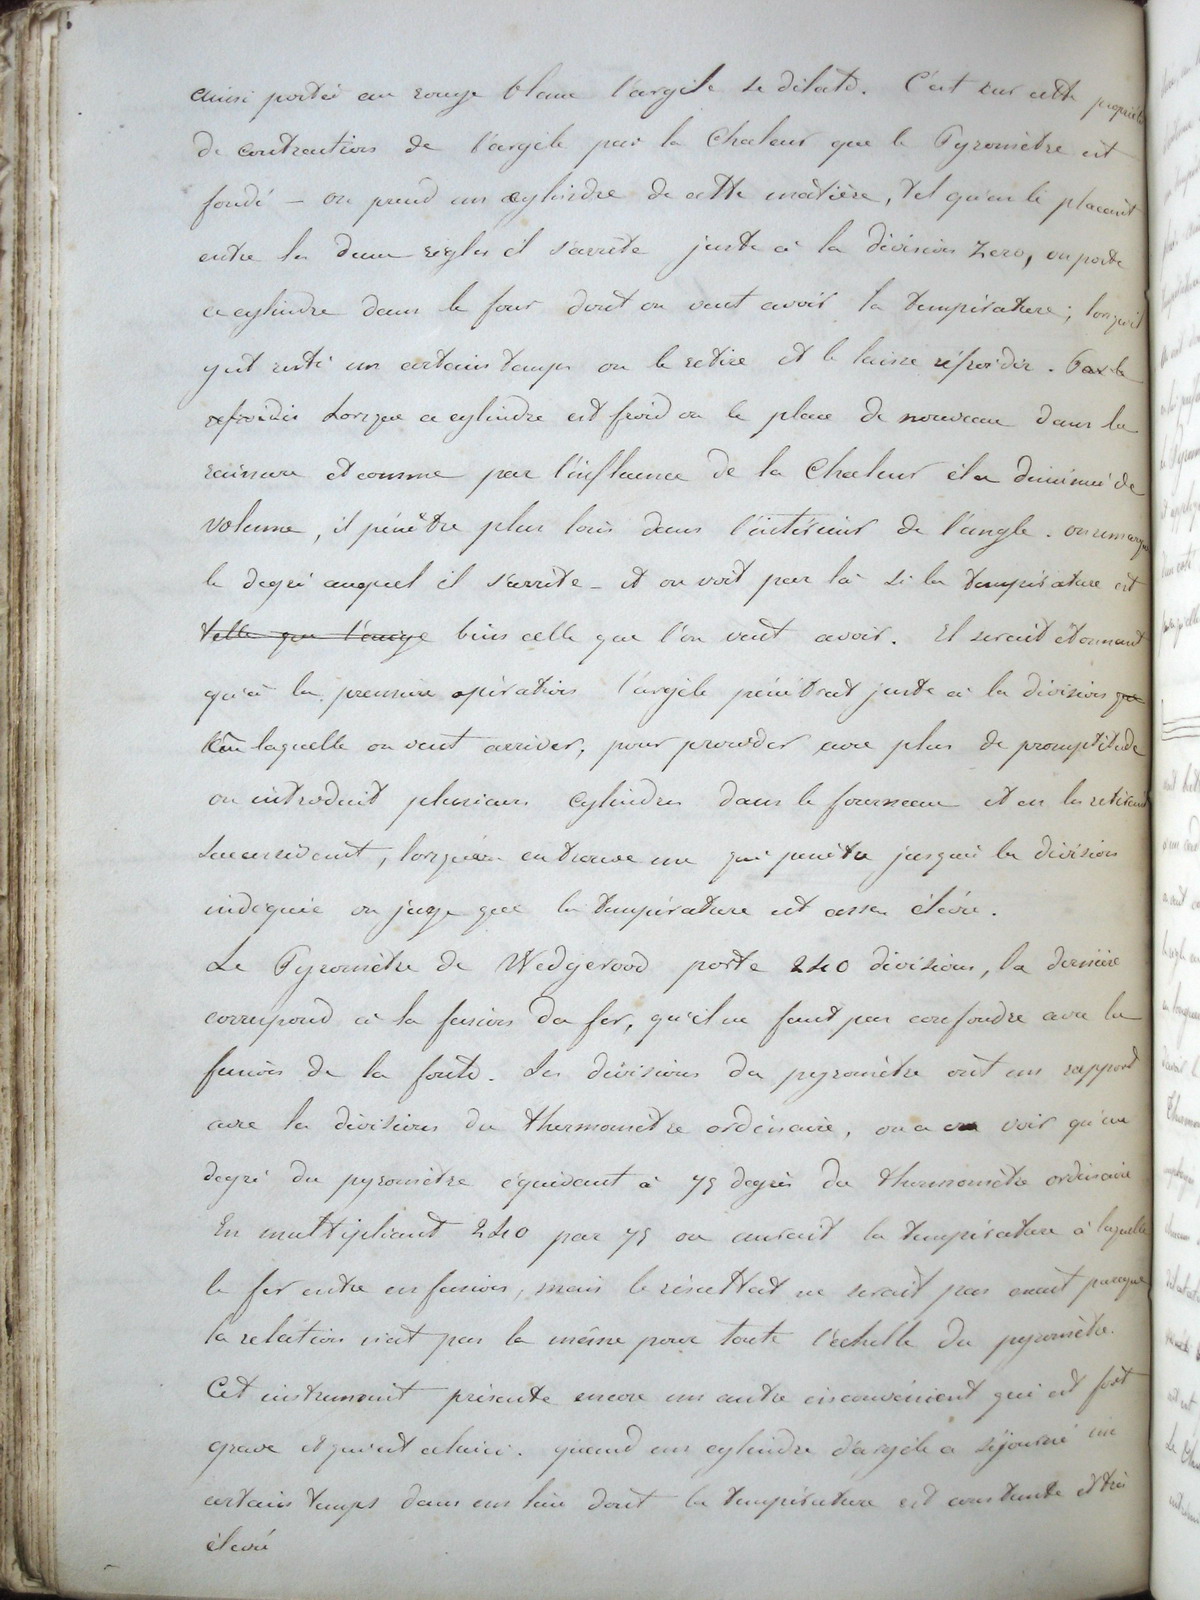 ainsi portée au rouge blanc l'argile se dilate. C'est sur cette propriété
de contraction de l'argile par la Chaleur que le Pyromètre est
fondé – on prend un cylindre de cette matière, tel qu'en le plaçant
entre les deux règles il s'arrête juste à la division Zero, on porte
ce cylindre dans le four dont on veut avoir la température; lorsqu'il
y est resté un certain temps on le retire et le laisse réfroidir.
refroidir Lorsque ce cylindre est froid on le place de nouveau dans la
rainure et comme par l'influence de la Chaleur il a diminué de
volume, il pénètre plus loin dans l'intérieur de l'angle. on remarque
le degré auquel il s'arrête – et on voit par là si la température est
telle que l'exige bien celle que l'on veut avoir. Il serait étonnant
qu'à la première opération l'argile pénétrat juste à la division que
laquelle on veut arriver, pour procéder avec plus de promptitude
on introduit plusieurs cylindres dans le fourneau et en les retirant
succession, lorsqu'on en trouve un qui penètre jusqu'à la division
indiquée on juge que la température est assez élevée.
Le Pyromètre de Wedgewood porte 240 divisions, la dernière
correspond à la fusion du fer, qu'il ne faut pas confondre avec la
fusion de la fonte. Les divisions du pyromètre ont un rapport
avec la division du thermomètre ordinaire, on a cru voir qu'un
degré du pyromètre équivaut à 75 degrés du thermomètre ordinaire
En multipliant 240 par 75 on aurait la température à laquelle
le fer entre en fusion, mais le résultat ne serait pas exact parceque
la relation n'est pas la même pour toute l'échelle du pyromètre.
Cet instrument présente encore un autre inconvénient qui est fort
grave et qui est celui ci. quand un cylindre d'argile a séjourné un
certain temps dans un lieu dont la température est constante et très
élevé